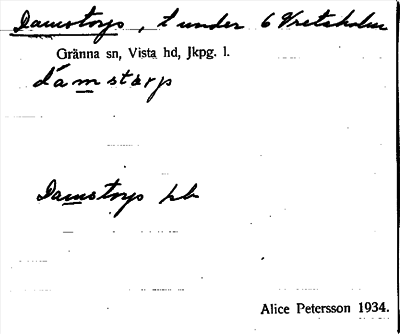 Damstorp, t under 6 Vretaholm
Gränna sn, Vista hd, Jkpg. l.
dámstɑrp
Damstorp jb
Alice Petersson 1934.